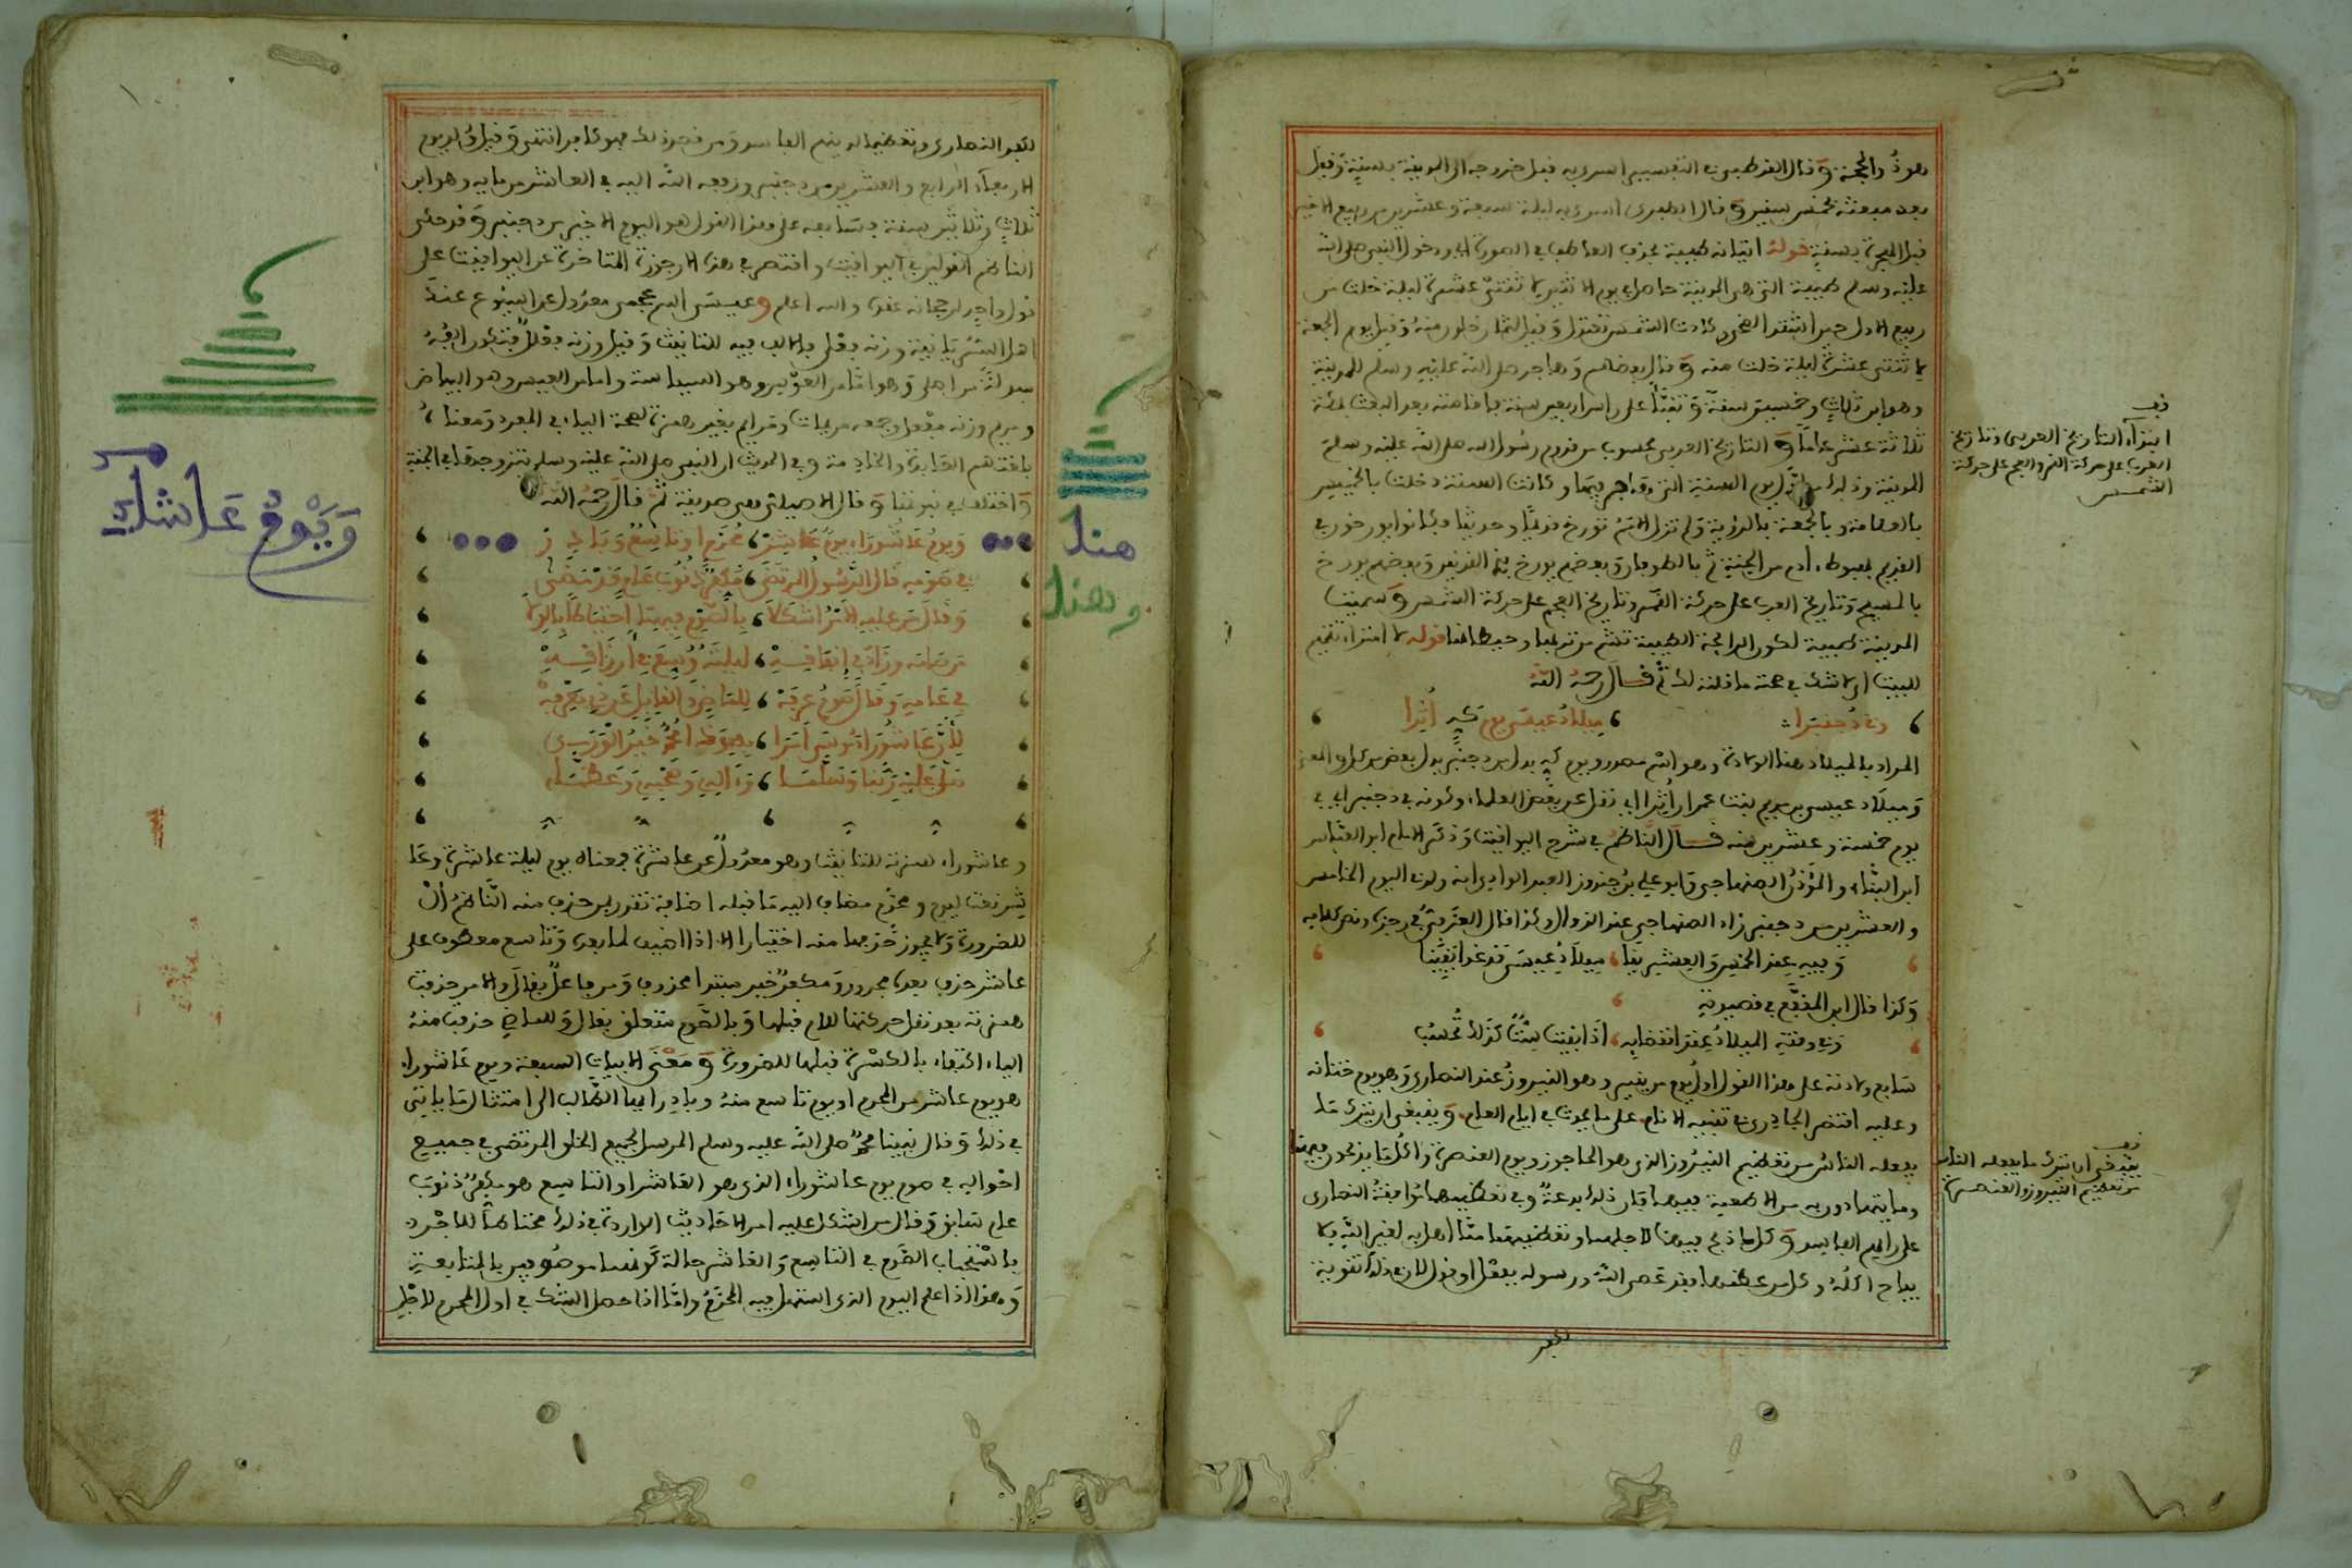 وهو ذو الحجة وقال القرطبي في التفسير اسري به قبل خروجه الى المدينة بسنة وقيل
بعد مبعثه بخمس سنين وقال الطبري اسري به ليلة سبعة وعشرين من ربيع الاخر
قبل الهجرة بسنة قوله اتيانه طيبة بحذف العاطف في الصورة اي ودخول النبي صلى الله
عليه وسلم طيبة التي هي المدينة حاصل يوم الاثنين لاثنتى عشرة ليلة خلت من
ربيع الاول حين اشتد الضحى وكادت الشمس تعتدل وقيل لثمان خلون منه وقيل يوم الجمعة
لاثنتى عشرة ليلة خلت منه وقال بعضهم وهاجر صلى الله عليه وسلم للمدينة
وهو ابن ثلاث وخمسين سنة وتنبأ على راس اربعين سنة فاقامته بعد البعث بمكة
ثلاثة عشر عاما والتاريخ العربي محسوب من قدوم رسول الله صلى الله عليه وسلم
المدينة وذلك من اول يوم السنة التي هاجر فيها وكانت السنة دخلت بالخميس
بالعلامة وبالجمعة بالرؤية ولم تزل الامم تورخ قديما وحديثا فكانوا يورخون في
القديم بهبوط ادم من الجنة ثم بالطوفان وبعضهم يورخ بذي القرنين وبعضهم يورخ
بالمسيح وتاريخ العرب على حركة القمر وتاريخ العجم على حركة الشمس وسميت
المدينة طيبة لكون الرائحة الطيبة تشم من تربها وحيطانها قوله لا امتراء تتميم
للبيت اي لا شك في صحة ما قلته لك ثم قال رحمه الله
وفي دجنبر ميلاد عيسى يوم كه اثرا
المراد بالميلاد هنا الولادة وهو اسم مصدر ويوم كه بدل من دجنبر بدل بعض من كل والمعنى
وميلاد عيسى بن مريم بنت عمران اثرا اي نقل عن بعض العلماء وكونه في دجنبر اي في
يوم خمسة وعشرين منه قال الناظم في شرح اليواقيت وذكر الامام ابو العباس
ابن البناء والمؤذن الصنهاجي وابو علي بن جنود العبد الوادي انه ولد في اليوم الخامس
والعشرين من دجنبر زاد الصنهاجي عند الزوال وكذا قال في رجزه ونص كلامه
وفيه عند الخمس والعشرينا ميلاد عيسى قد غدا يقينا
وكذا قال ابن المقفع في قصيدته
وفي وقته الميلاد عند انقضايه اذا بقيت ست كذلك تحسب
سابع ولادته على هذا القول اول يوم من ينير وهو النيروز عند النصارى وهو يوم ختانه
وعليه اقتصر الجادري في تنبيه الانام على ما يحدث في ايام العام وينبغي ان يترك ما
يفعله الناس من تعظيم النيروز الذي هو الحاجوز ويوم العنصرة واكل ما يذبحون فيهما
وما يتهادون به من الاطعمة فيهما فان ذلك بدعة وفي تعظيمهما موافقة النصارى
على رايهم الفاسد وكل ما ذبح فيهما لاجلهما وتعظيمهما مما اهل به لغير الله لا
يباح اكله وكل من عظمهما فقد عصى الله ورسوله بفعل او قول لان في ذلك تقوية
لكفر
قف
ابتداء التاريخ العربي وتاريخ
العرب على حركة القمر والعجم على حركة
الشمس
قف
ينبغي ان يترك ما يفعله الناس
من تعظيم النيروز والعنصرة
لكفر النصارى وتعظيما لدينهم الفاسد ومن قصد ذلك فهو كافر انتهى وقيل ولد يوم
الاربعاء الرابع والعشرين من دجنبر ورفعه الله اليه في العاشر من مايه وهو ابن
ثلاث وثلاثين سنة فسابعه على هذا القول هو اليوم الاخير من دجنبر وقد حكى
الناظم القولين في اليواقيت واقتصر في هذه الارجوزة المتاخرة عن اليواقيت على
قول واحد لرجحانه عنده والله اعلم وعيسى اسم عجمي معدول عن ايشوع عند
اهل السريانية وزنه فعلى والالف فيه للتانيث وقيل وزنه فعلل
وهو السياسة واما من العيس وهو البياض
ومريم وزنه مفعل وجمعه مريمات ومرايم بغير همزة لصحة الياء في المفرد ومعناه
بلغتهم العابدة والخادمة وفي الحديث ان النبي صلى الله عليه وسلم تزوجها في الجنة
واختلف في نبوتها وقال الاصيلي هي صديقة ثم قال رحمه الله
ويوم عاشوراء يوم عاشر محرم او تاسع وبادر
في صومه قال الرسول المرتضى مكفر ذنوب عام قد مضى
وقال من عليه الامر اشكلا بالصوم فيهما احتياطا بالولا
من صامه وزاد في انفاقه لعياله وسع في ارزاقه
في عامه وقال صوم عرفة للماضي والقابل عن ذي معرفة
لان عاشوراء موسى امرا بصومه احمد خير الورى
صلى عليه ربنا وسلما واله وصحبه وعظما
وعاشوراء همزته للتانيث وهو معدول عن عاشرة فمعناه يوم ليلة عاشرة وعا
شر نعت ليوم ومحرم مضاف اليه ما قبله اضافة تقدير من حذف منه الناظم ال
للضرورة ولا يجوز حذفها منه اختيارا الا اذا اضيف لما بعده وتاسع معطوف على
عاشر حذف بعده مجرور ومكفر خبر مبتدا محذوف ومن فاعل بقال والامر حذفت
همزته بعد نقل حركتها للام قبلها وبالصوم متعلق بقال وللماضي حذفت منه
الياء اكتفاء بالكسرة قبلها للضرورة ومعنى الابيات السبعة ويوم عاشوراء
هو يوم عاشر من المحرم او يوم تاسع منه وبادر ايها الطالب الى امتثال ما ياتي
في ذلك وقال نبينا محمد صلى الله عليه وسلم المرسل لجميع الخلق المرتضى في جميع
احواله في صوم يوم عاشوراء الذي هو العاشر او التاسع هو مكفر ذنوب
عام سابق وقال من اشكل عليه امر الاحاديث الواردة في ذلك محتاطا للاجر
باستحباب الصوم في التاسع والعاشر حالة كونهما موصوفين بالمتابعة
وهذا اذا علم اليوم الذي استهل فيه المحرم واما اذا حصل الشك في اول المحرم لاجل
هنا
وهنا
ويوم عاشر